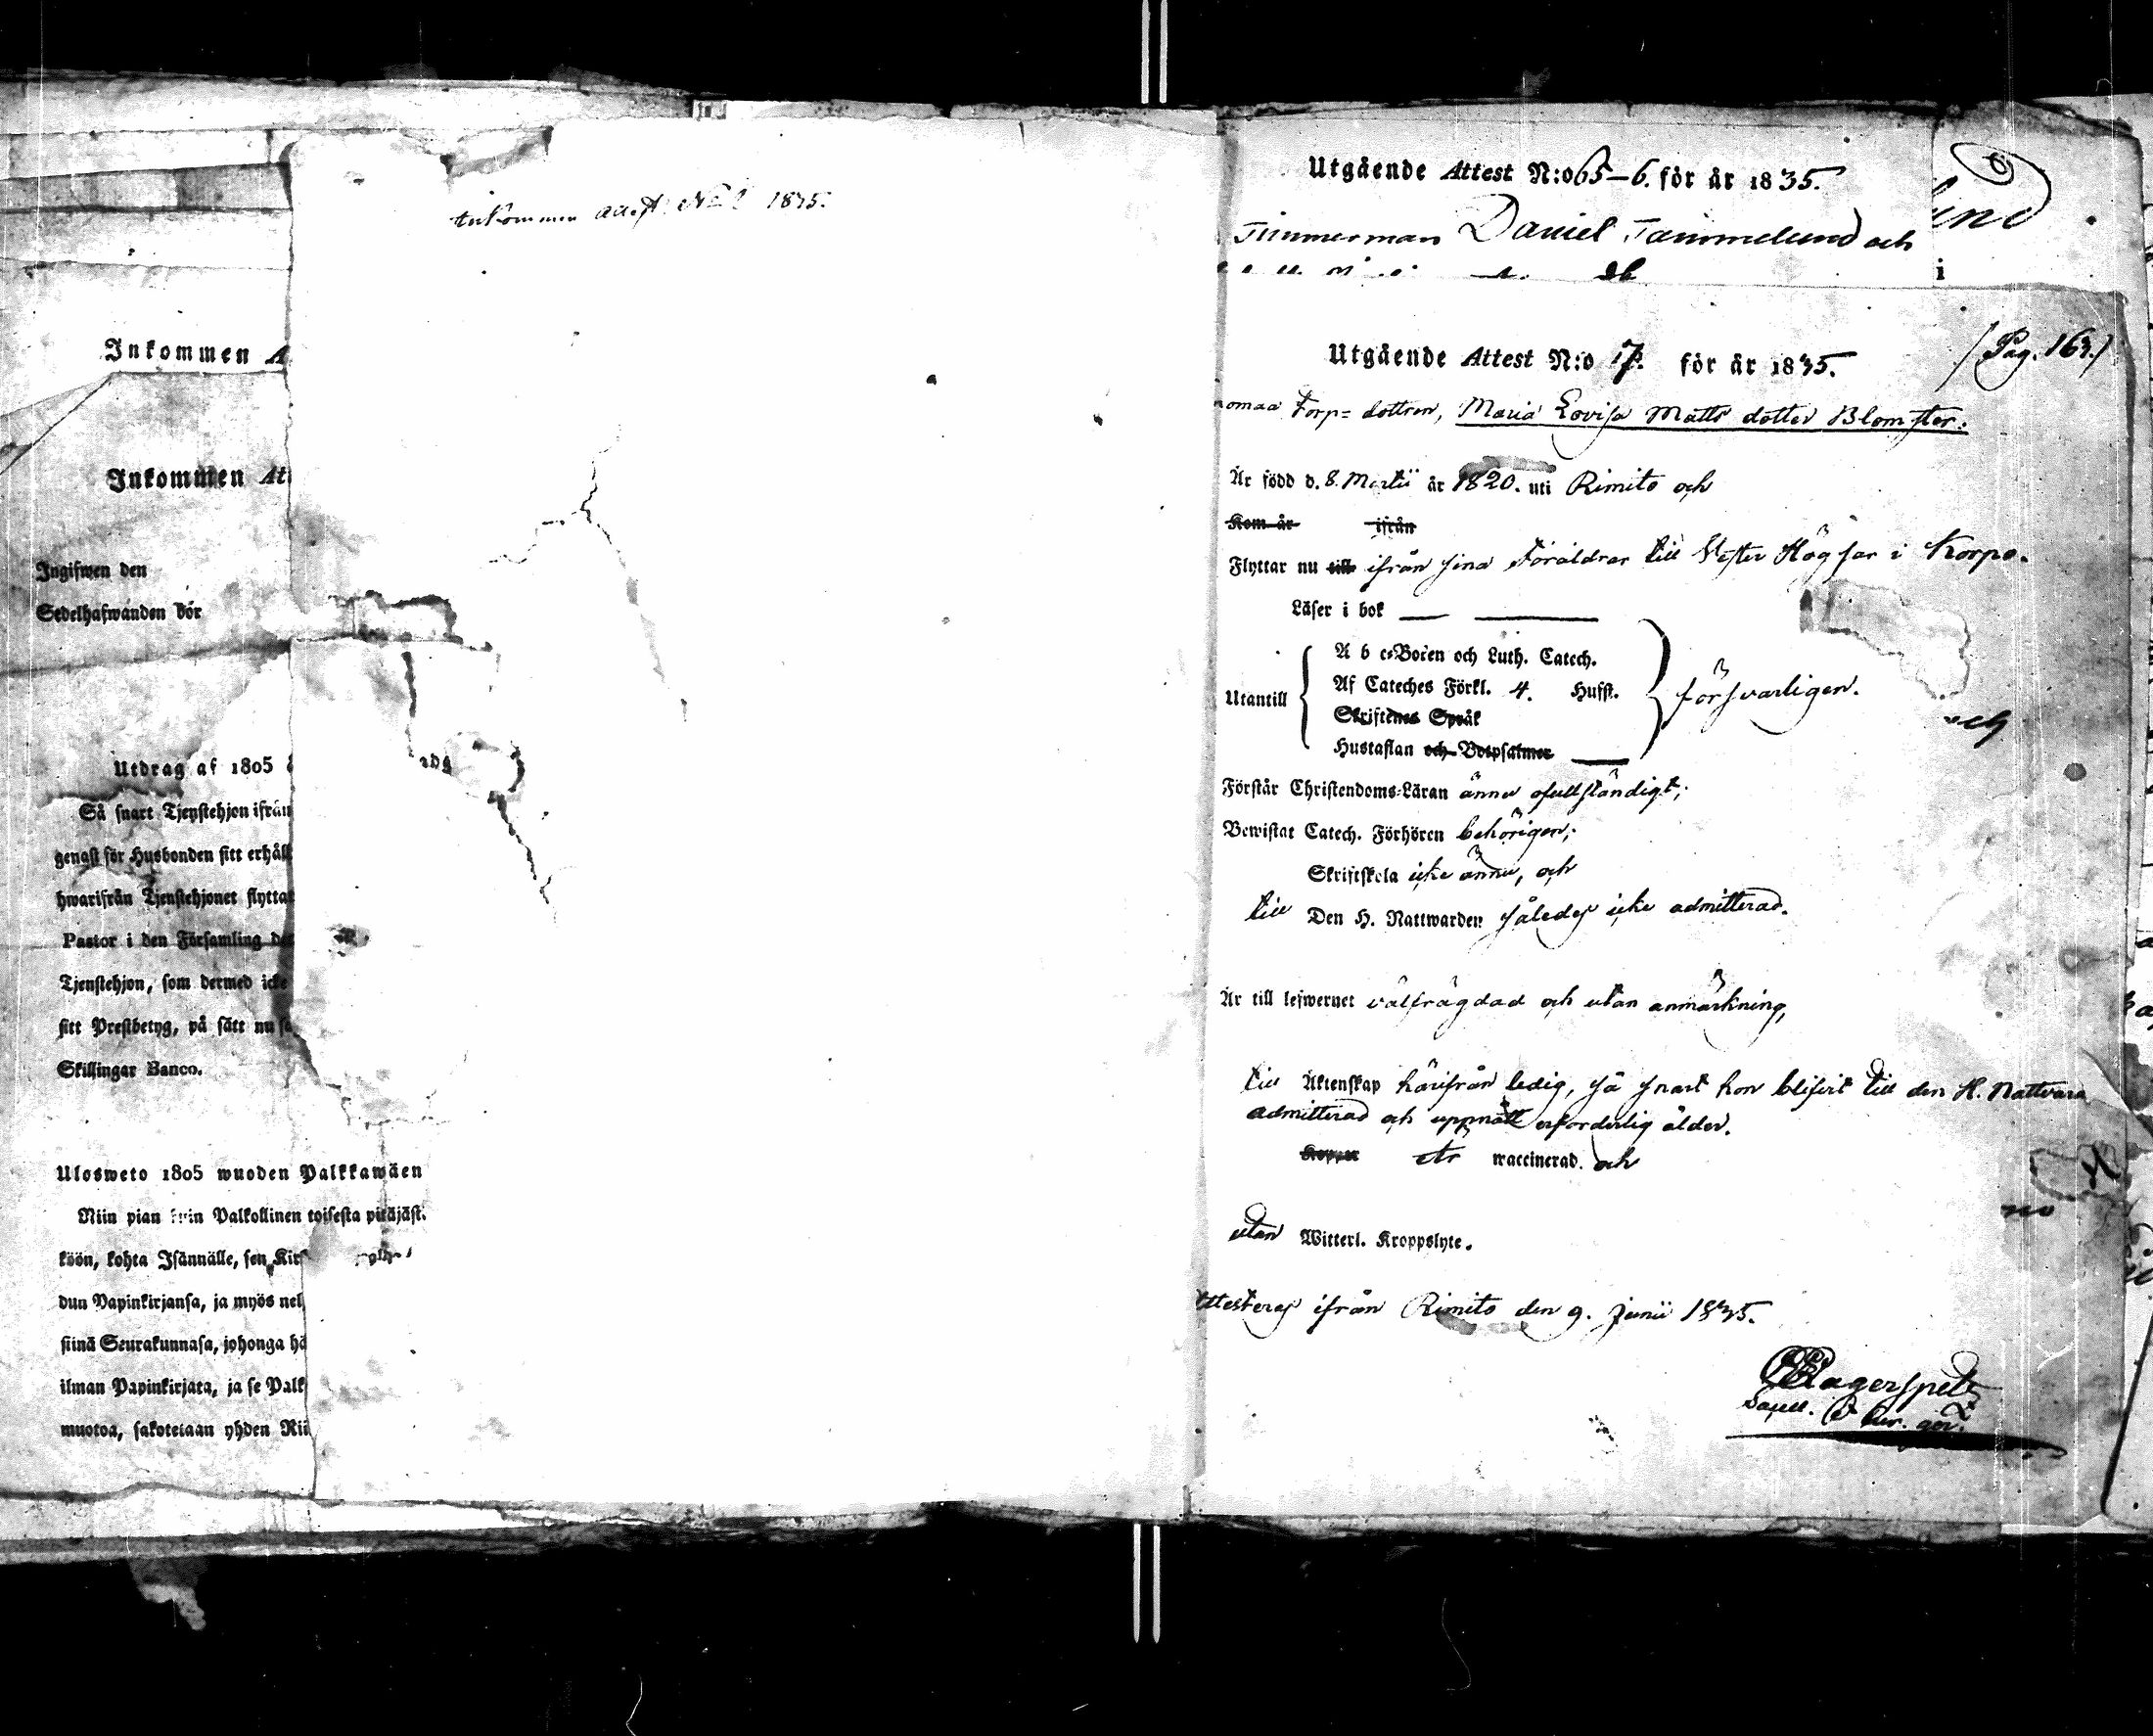 Inkommen attest No 2 1835.
Inkommen A
Inkommen At
Ingifwen den
Sedelhafwanden bör
Utdrag af 1805
Så snart Tjenstehjon ifrån
genast för Husbonden sitt erhåll
hwarifrån Tjenstehjonet flyttar
Pastor i den Församling der
Tjenstehjon, som dermed icke
sitt Prestbetyg, på sätt nu s
Skillingar Banco.
Ulosweto 1805 wuoden Palkkawäen
Niin pian kuin Palkollinen toisesta pitäjäst
köön, kohta Isännälle, sen Kir
dun Papinkirjansa, ja myös nel
siinä Seurakunnasa, johonga hä
ilman Papinkirjata, ja se Palk
muotoa, sakotetaan yhden Rii
Utgående Attest N:o 65-6. för år 1835.
Timmerman Daniel Tammelund och
und
i
Utgående Attest N:o 7. för år 1835.
/Pag. 163./
Torp= dottren, Maria Lovisa Matts dotter Blomster.
Är född d. 8. Martii år 1820. uti Rimito och
Kom år ifrån
Flyttar nu till ifrån sina Föräldrar till Vester Högsar i Korpo.
Läser i bok
Utantill
A b c-Boken och Luth. Catech.
Af Cateches Förkl. 4. Hufst.
Skriftenes Språk
Hustaflan och Botpsalmer
försvarligen.
Förstår Christendoms-Läran ännu ofullständigt;
Bewistat Catech. Förhören behörigen;
Skriftskola icke ännu, och
till Den H. Nattwarden således icke admitterad.
Är till lefwernet välfrägdad och utan anmärkning,
till Äktenskap härifrån ledig, så snart hon blifvit till den H. Nattvard
admitterad och uppnått erforderlig ålder.
Koppor är waccinerad. och
utan Witterl. Kroppslyte.
Attesteras ifrån Rimito den 9. Junii 1835.
Lagerspetz